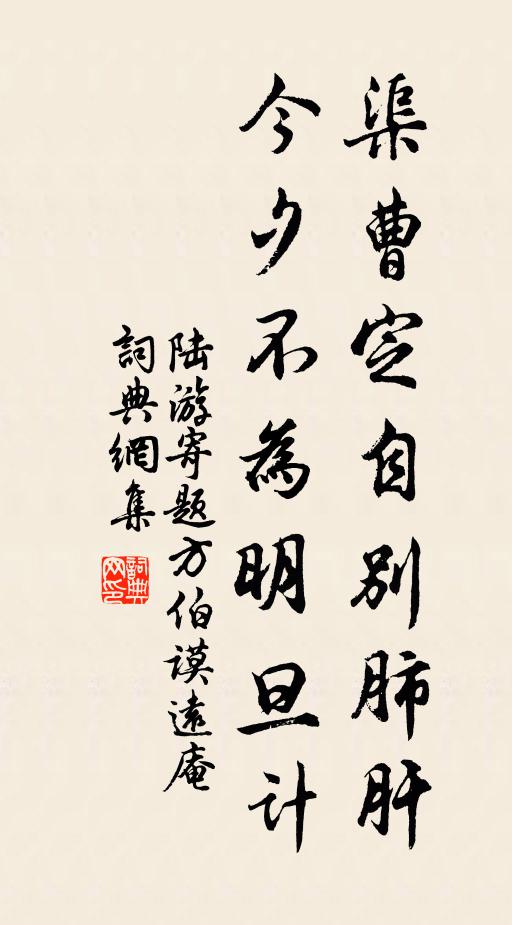 渠曹定自别肺肝
今夕不為明旦计
陆游寄题方伯谟遠庵
詞典網集
詞典
网印